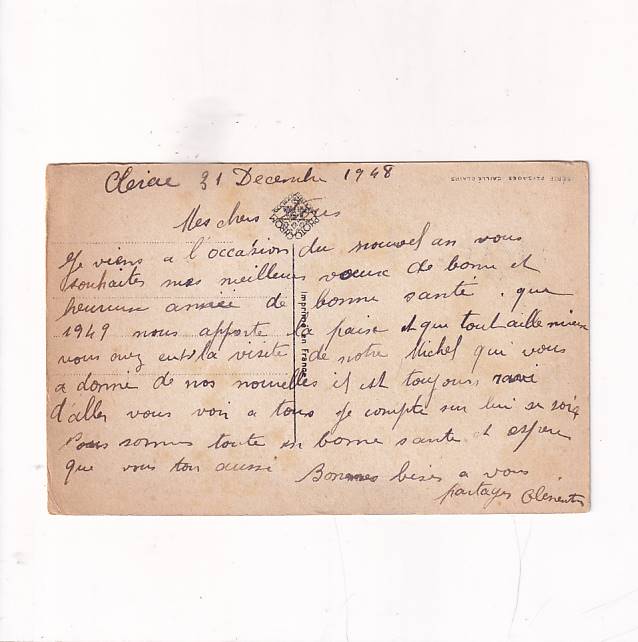 31 Decembre 1948
SERIE PAYSAGES CAILLECLAIRS
Mes chers
Je viens a l'occasion du nouvel an vous
souhaiter mes meilleurs voeux de bonne et
heureuse année de bonne santé. que
1949 nous apporte la paise et que tout aille mieux
vous avez eut la visite de notre Michel qui vous
a donne de nos nouvelles il est toujours ravi
d'aller vous voir a tous je compte sur lui ce soir
Nous sommes toute en bonne sante et espere
que vous tous aussi
Bonnes bises a vous
partager Clementine
Imprimé en France